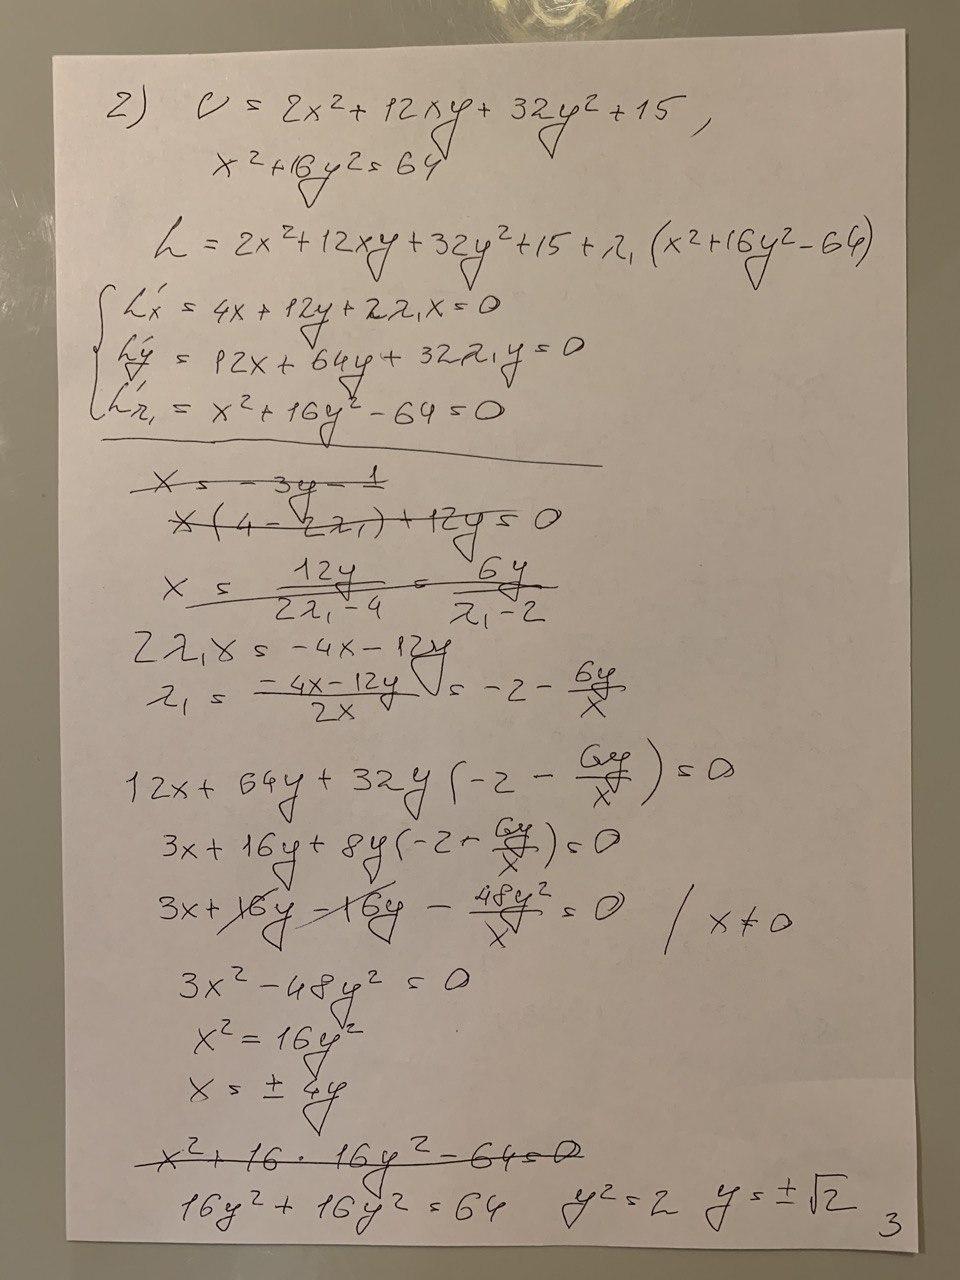 2) U = 2x² + 12xy + 32y² + 15,
x² + 16y² = 64
L = 2x² + 12xy + 32y² + 15 + λ₁ (x² + 16y² - 64)
L'x = 4x + 12y + 2λ₁x = 0
L'y = 12x + 64y + 32λ₁y = 0
L'λ₁ = x² + 16y² - 64 = 0
x = - 3y - 1
x(4 - 2λ₁) + 12y = 0
x = 12y/(2λ₁ - 4) = 6y/(λ₁ - 2)
2λ₁x = -4x - 12y
λ₁ = (-4x - 12y)/2x = -2 - 6y/x
12x + 64y + 32y (-2 - 6y/x) = 0
3x + 16y + 8y (-2 - 6y/x) = 0
3x + 16y - 16y - 48y²/x = 0 / x ≠ 0
3x² - 48y² = 0
x² = 16y²
x = ± 4y
x² + 16 · 16y² - 64 = 0
16y² + 16y² = 64 y² = 2 y = ±√2
3